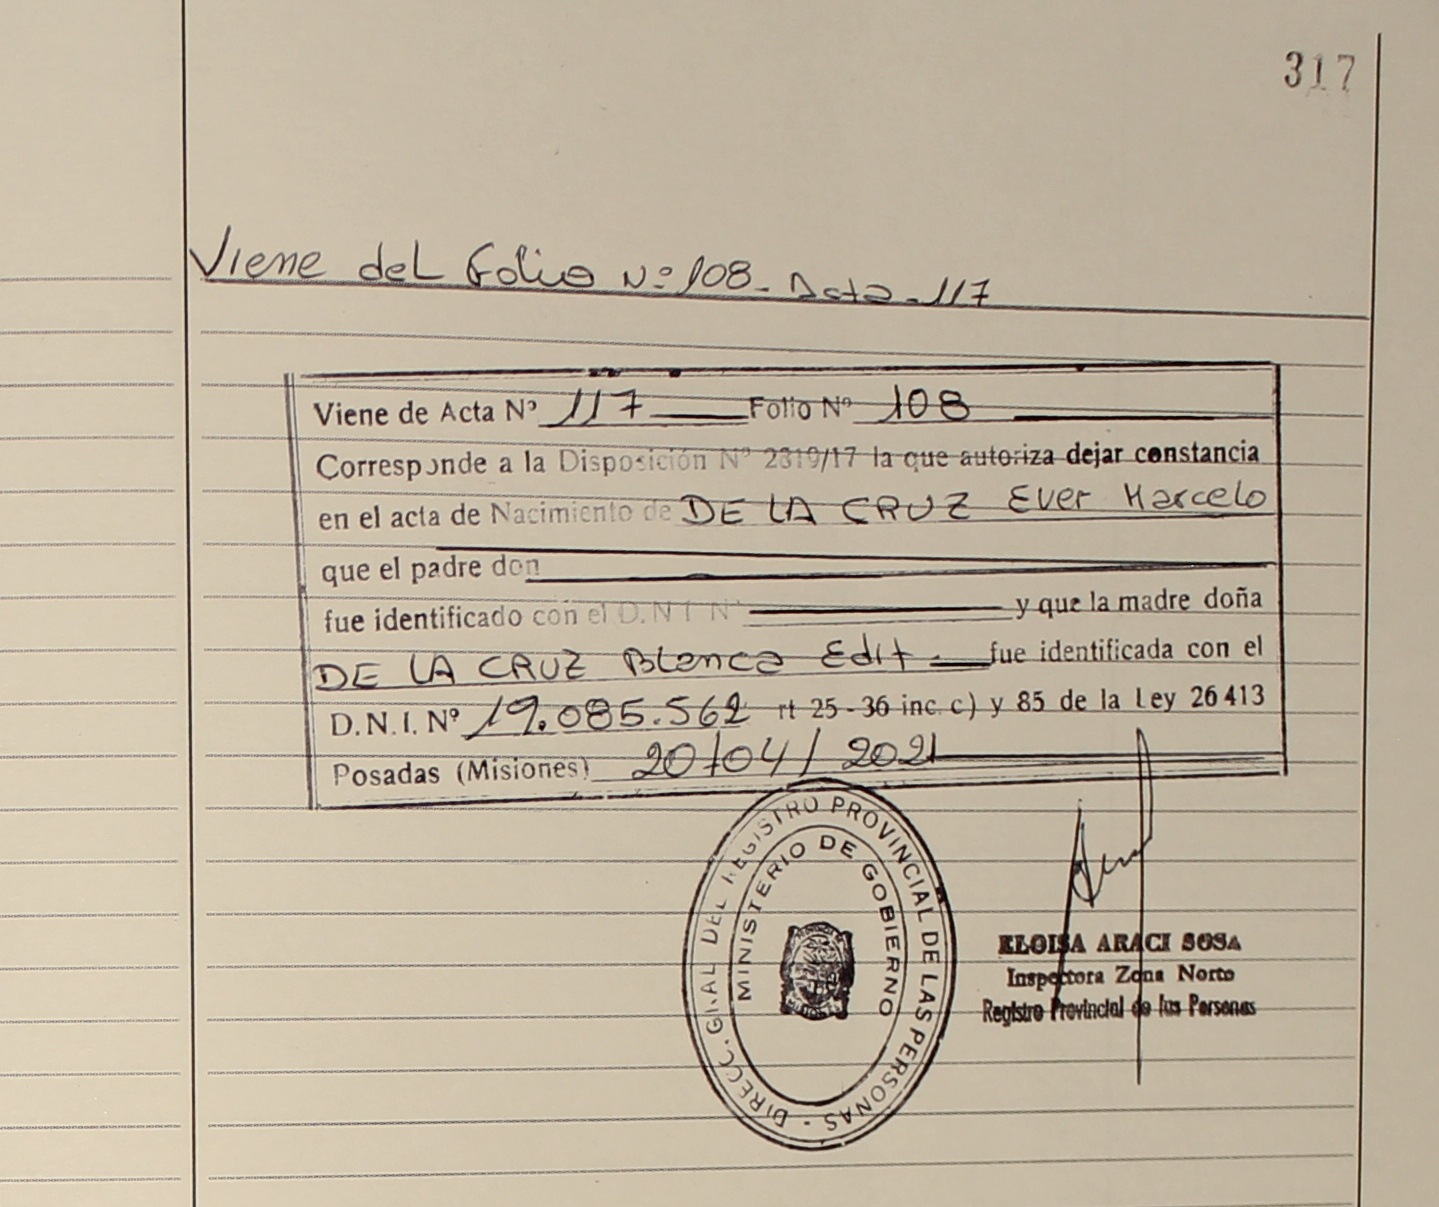 317
Viene del Folio Nº 108 - Acta - 117
Viene de Acta Nº 117 Folio Nº 108
Corresponde a la Disposición Nº 2319/17 la que autoriza dejar constancia
en el acta de Nacimiento de DE LA CRUZ Ever Marcelo
que el padre don
fue identificado con el D.N.I Nº y que la madre doña
DE LA CRUZ Blanca Edit fue identificada con el
D.N.I. Nº 19.085.562 rt 25-36 inc. c) y 85 de la Ley 26413
Posadas (Misiones) 20/04/2021
DIRECC. GRAL DEL REGISTRO PROVINCIAL DE LAS PERSONAS -
MINISTERIO DE GOBIERNO
ELOISA ARACI SOSA
Inspectora Zona Norte
Registro Provincial de las Personas